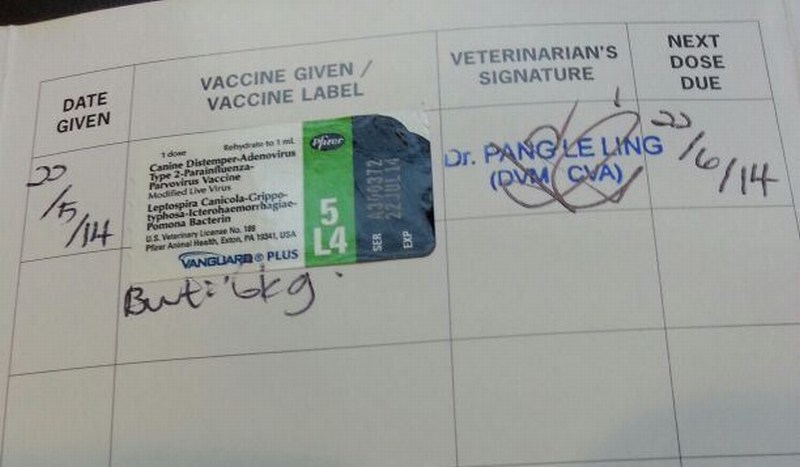 DATE GIVEN
VACCINE GIVEN /
VACCINE LABEL
VETERINARIAN'S
SIGNATURE
NEXT
DOSE
DUE
22
/5
/14
1 dose Rehydrate to 1 mL
Canine Distemper-Adenovirus
Type 2-Parainfluenza-
Parvovirus Vaccine
Modified Live Virus
Leptospira Canicola-Grippo-
typhosa-Icterohaemorrhagiae-
Pomona Bacterin
U.S. Veterinary License No. 189
Pfizer Animal Health, Exton, PA 19341, USA
VANGUARD® PLUS
Pfizer
5
L4
SER
EXP 22JUL14
Dr. PANG LE LING
(DVM CVA)
22
/6
/14
6kg